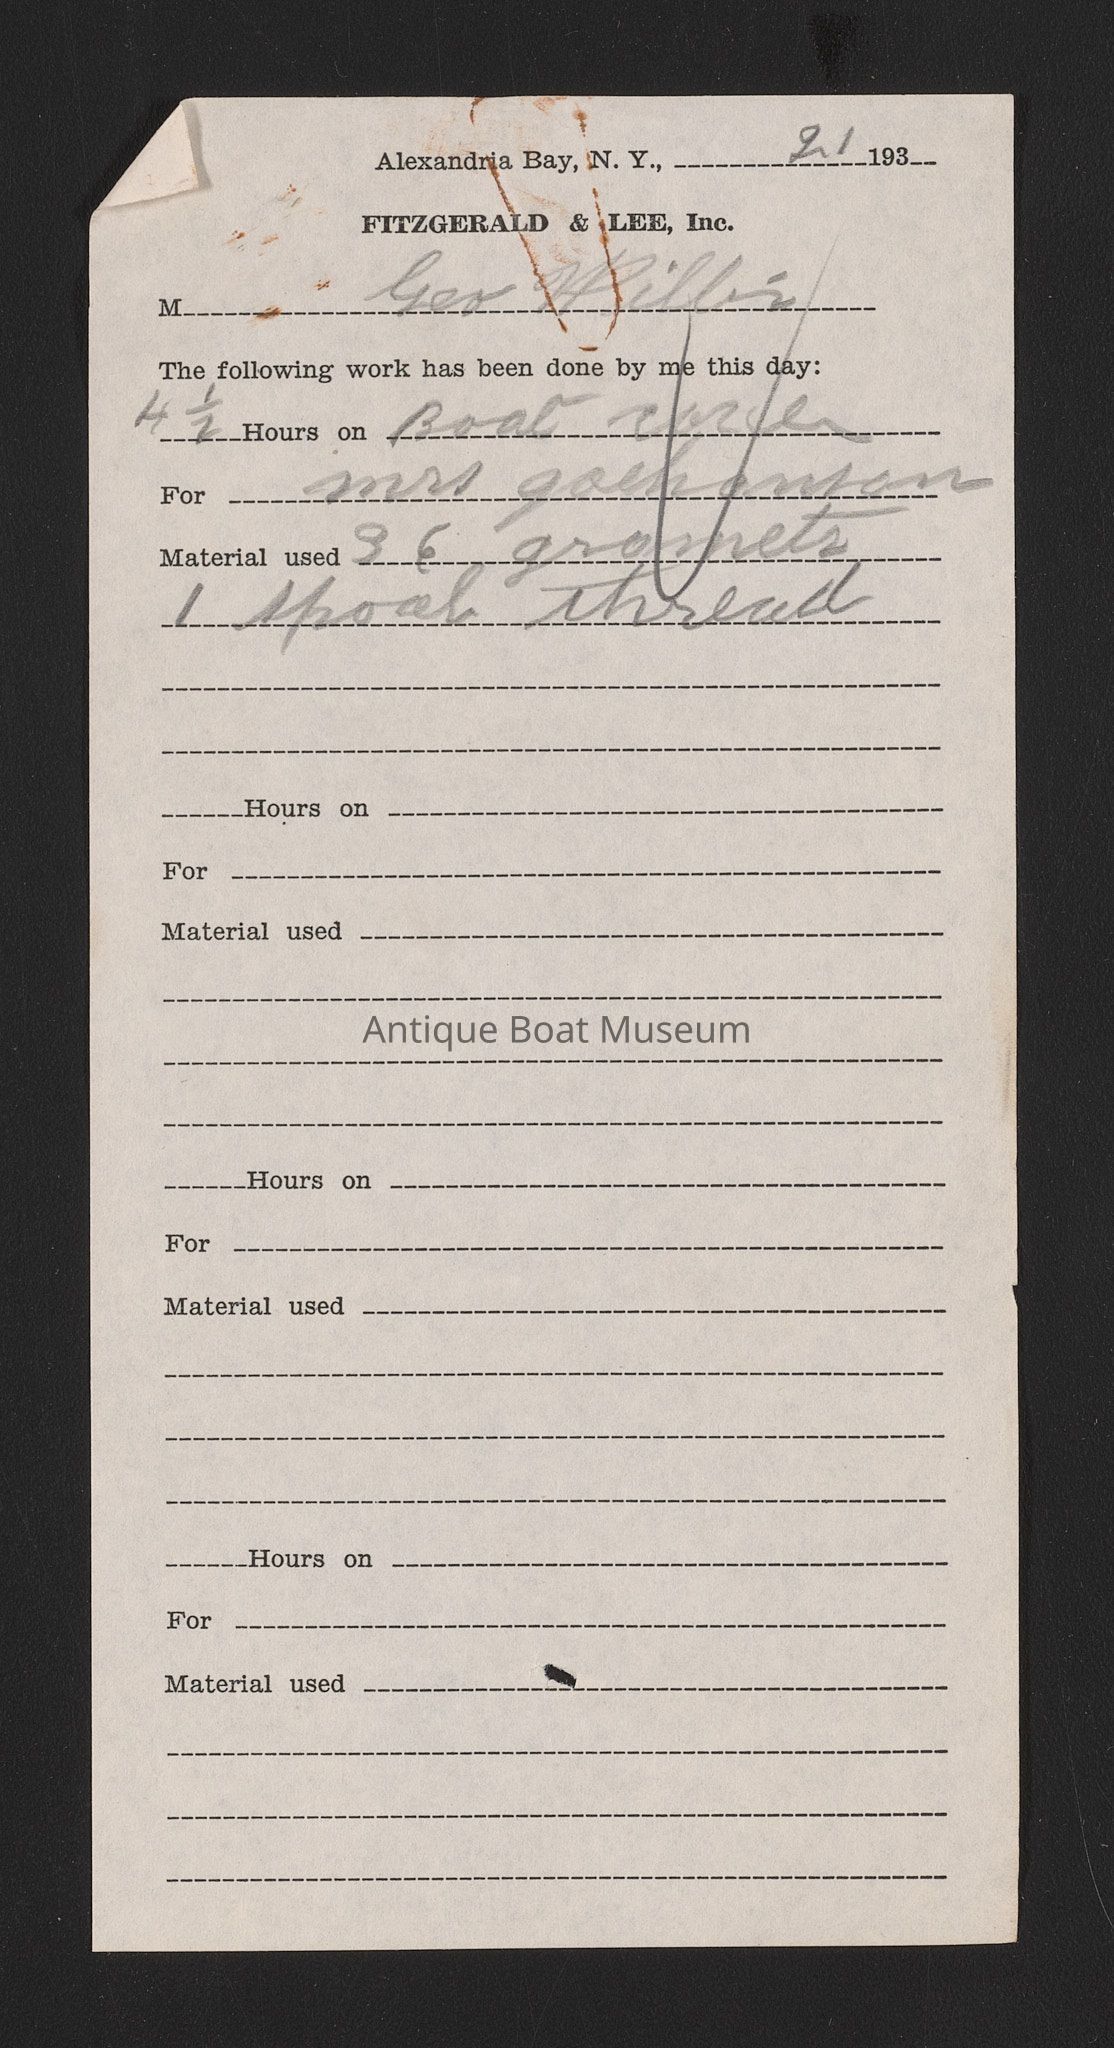 Alexandria Bay, N. Y., 21 193
FITZGERALD & LEE, Inc.
M Geo
The following work has been done by me this day:
4 1/2 Hours on Boat cover
For mrs
Material used 36 gromets
1 spoal thread
Hours on
For
Material used
Antique Boat Museum
Hours on
For
Material used
Hours on
For
Material used